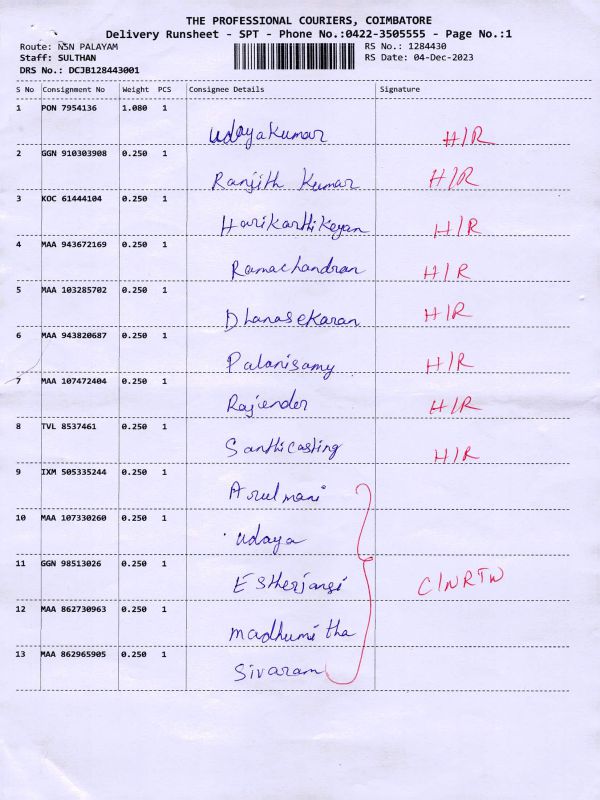 THE PROFESSIONAL COURIERS, COIMBATORE
Delivery Runsheet - SPT - Phone No.:0422-3505555 - Page No.:1
Route: NSN PALAYAM RS No.: 1284430
Staff: SULTHAN RS Date: 04-Dec-2023
DRS No.: DCJB128443001
S No Consignment No Weight PCS Consignee Details Signature
1 PON 7954136 1.080 1
Udayakumar H/R
2 GGN 910303908 0.250 1
Ranjith Kumar H/R
3 KOC 61444104 0.250 1
Harikarthikeyan H/R
4 MAA 943672169 0.250 1
Ramachandran H/R
5 MAA 103285702 0.250 1
Dhanasekaran H/R
6 MAA 943820687 0.250 1
Palanisamy H/R
7 MAA 107472404 0.250 1
Rajender H/R
8 TVL 8537461 0.250 1
Santhicasting H/R
9 IXM 505335244 0.250 1
Arulmani
10 MAA 107330260 0.250 1
udaya
11 GGN 98513026 0.250 1
Estherjansi C/NRTN
12 MAA 862730963 0.250 1
madhumitha
13 MAA 862965905 0.250 1
Sivaram